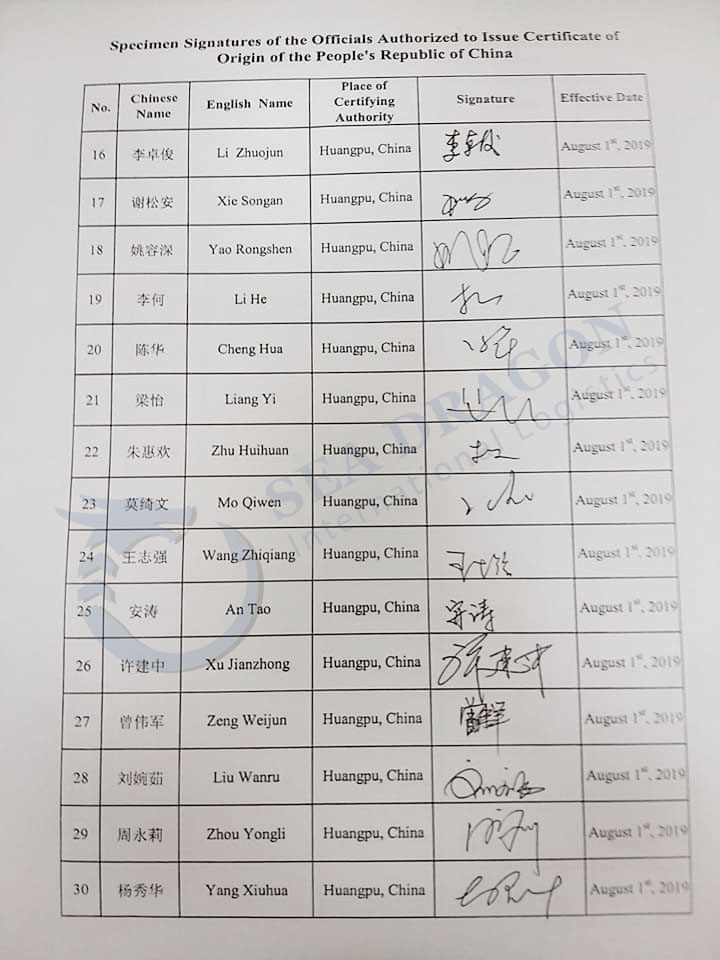 Specimen Signatures of the Officials Authorized to Issue Certificate of
Origin of the People's Republic of China
No. Chinese Name English Name Place of Certifying Authority Signature Effective Date
16 李卓俊 Li Zhuojun Huangpu, China August 1st, 2019
17 谢松安 Xie Songan Huangpu, China August 1st, 2019
18 姚容深 Yao Rongshen Huangpu, China August 1st, 2019
19 李何 Li He Huangpu, China August 1st, 2019
20 陈华 Cheng Hua Huangpu, China August 1st, 2019
21 梁怡 Liang Yi Huangpu, China August 1st, 2019
22 朱惠欢 Zhu Huihuan Huangpu, China August 1st, 2019
23 莫绮文 Mo Qiwen Huangpu, China August 1st, 2019
24 王志强 Wang Zhiqiang Huangpu, China August 1st, 2019
25 安涛 An Tao Huangpu, China 安涛 August 1st, 2019
26 许建中 Xu Jianzhong Huangpu, China 许建中 August 1st, 2019
27 曾伟军 Zeng Weijun Huangpu, China August 1st, 2019
28 刘婉茹 Liu Wanru Huangpu, China August 1st, 2019
29 周永莉 Zhou Yongli Huangpu, China August 1st, 2019
30 杨秀华 Yang Xiuhua Huangpu, China August 1st, 2019
SEA DRAGON
International Logistics